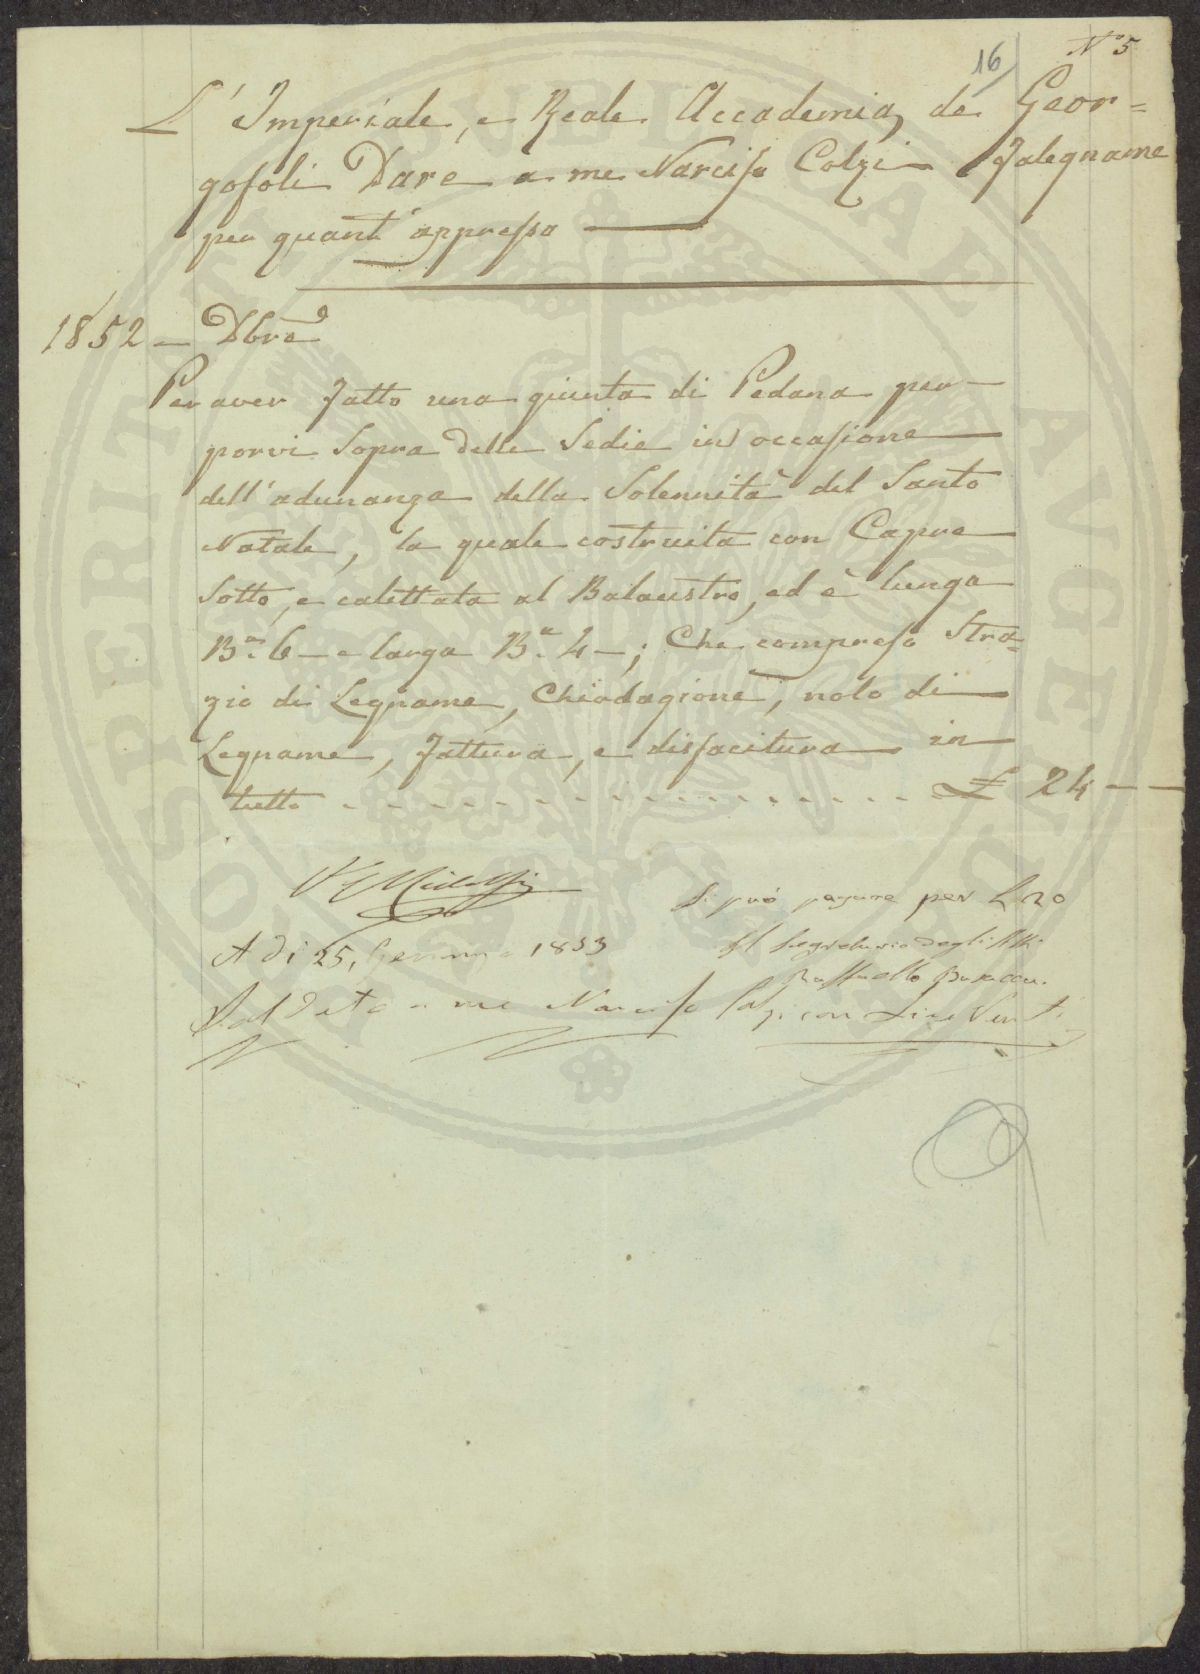 N° 5
16
L'Imperiale, e Reale Accademia de Geor=
gofoli Dare a me Narciso Colzi Falegname
per quant' appresso
1852 — Dbre
Per aver fatto una giunta di Pedana per
porvi Sopra delle Sedie in occasione
dell'adunanza della Solennità del Santo
Natale, la quale costruita con Capre
Sotto, e calettata al Balaustro, ed è lunga
Ba. 6 — e larga Ba. 4 —; Che compreso Stra=
zio di Legname, Chiodagione, nolo di
Legname, Fattura, e disfacitura in
tutto - - - - - - - - - - - - - - - £ 24 — —
Si può pagare per L 20
A di 25, Gennaio 1853
Il Segretario degli Atti
Raffaello Busacca.
Saldato a me Narciso Colzi con Lire Venti
PROSPERITATI PUBLICAE AUGENDAE